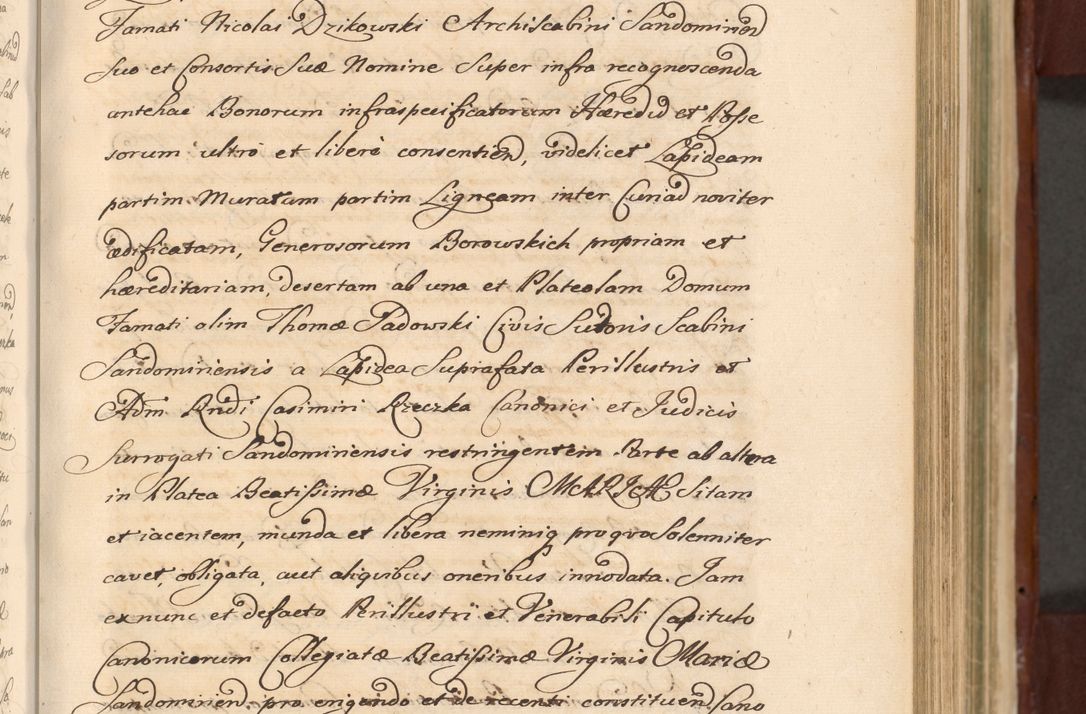 Famati Nicolai Dzikowski Archiscabini Sandomirien
suo et Consortis Suæ Nomine super infra recognoscenda
antehac Bonorum infraspecificatorum Hæred et Posse
sorum ultro et liberè consentien, videlicet Lapideam
partim Muratam partim Ligneam inter Curiad noviter
ædificatam, Generosorum Borowskich propriam et
hæreditariam, desertam ab una et Plateolam Domum
Famati olim Thomæ Padowski Civis Sutoris Scabini
Sandomiriensis a Lapidea Suprafata Perillustris et
Adm Rndi Casimiri Rzeczka Canonici et Judicis
Surrogati Sandomiriensis restringentem Parte ab altera
in Platea Beatissimæ Virginis MARIÆ Sitam
et iacentem, munda et libera neminiq pro qvo Solenniter
cavet, obligata, aut aliqvibus oneribus innodata. Jam
ex nunc et defacto Perillustri et Venerabili Capitulo
Canonicorum Collegiatæ Beatissimæ Virginis Mariæ
Sandomirien pro erigendo et de recenti constituend Sano